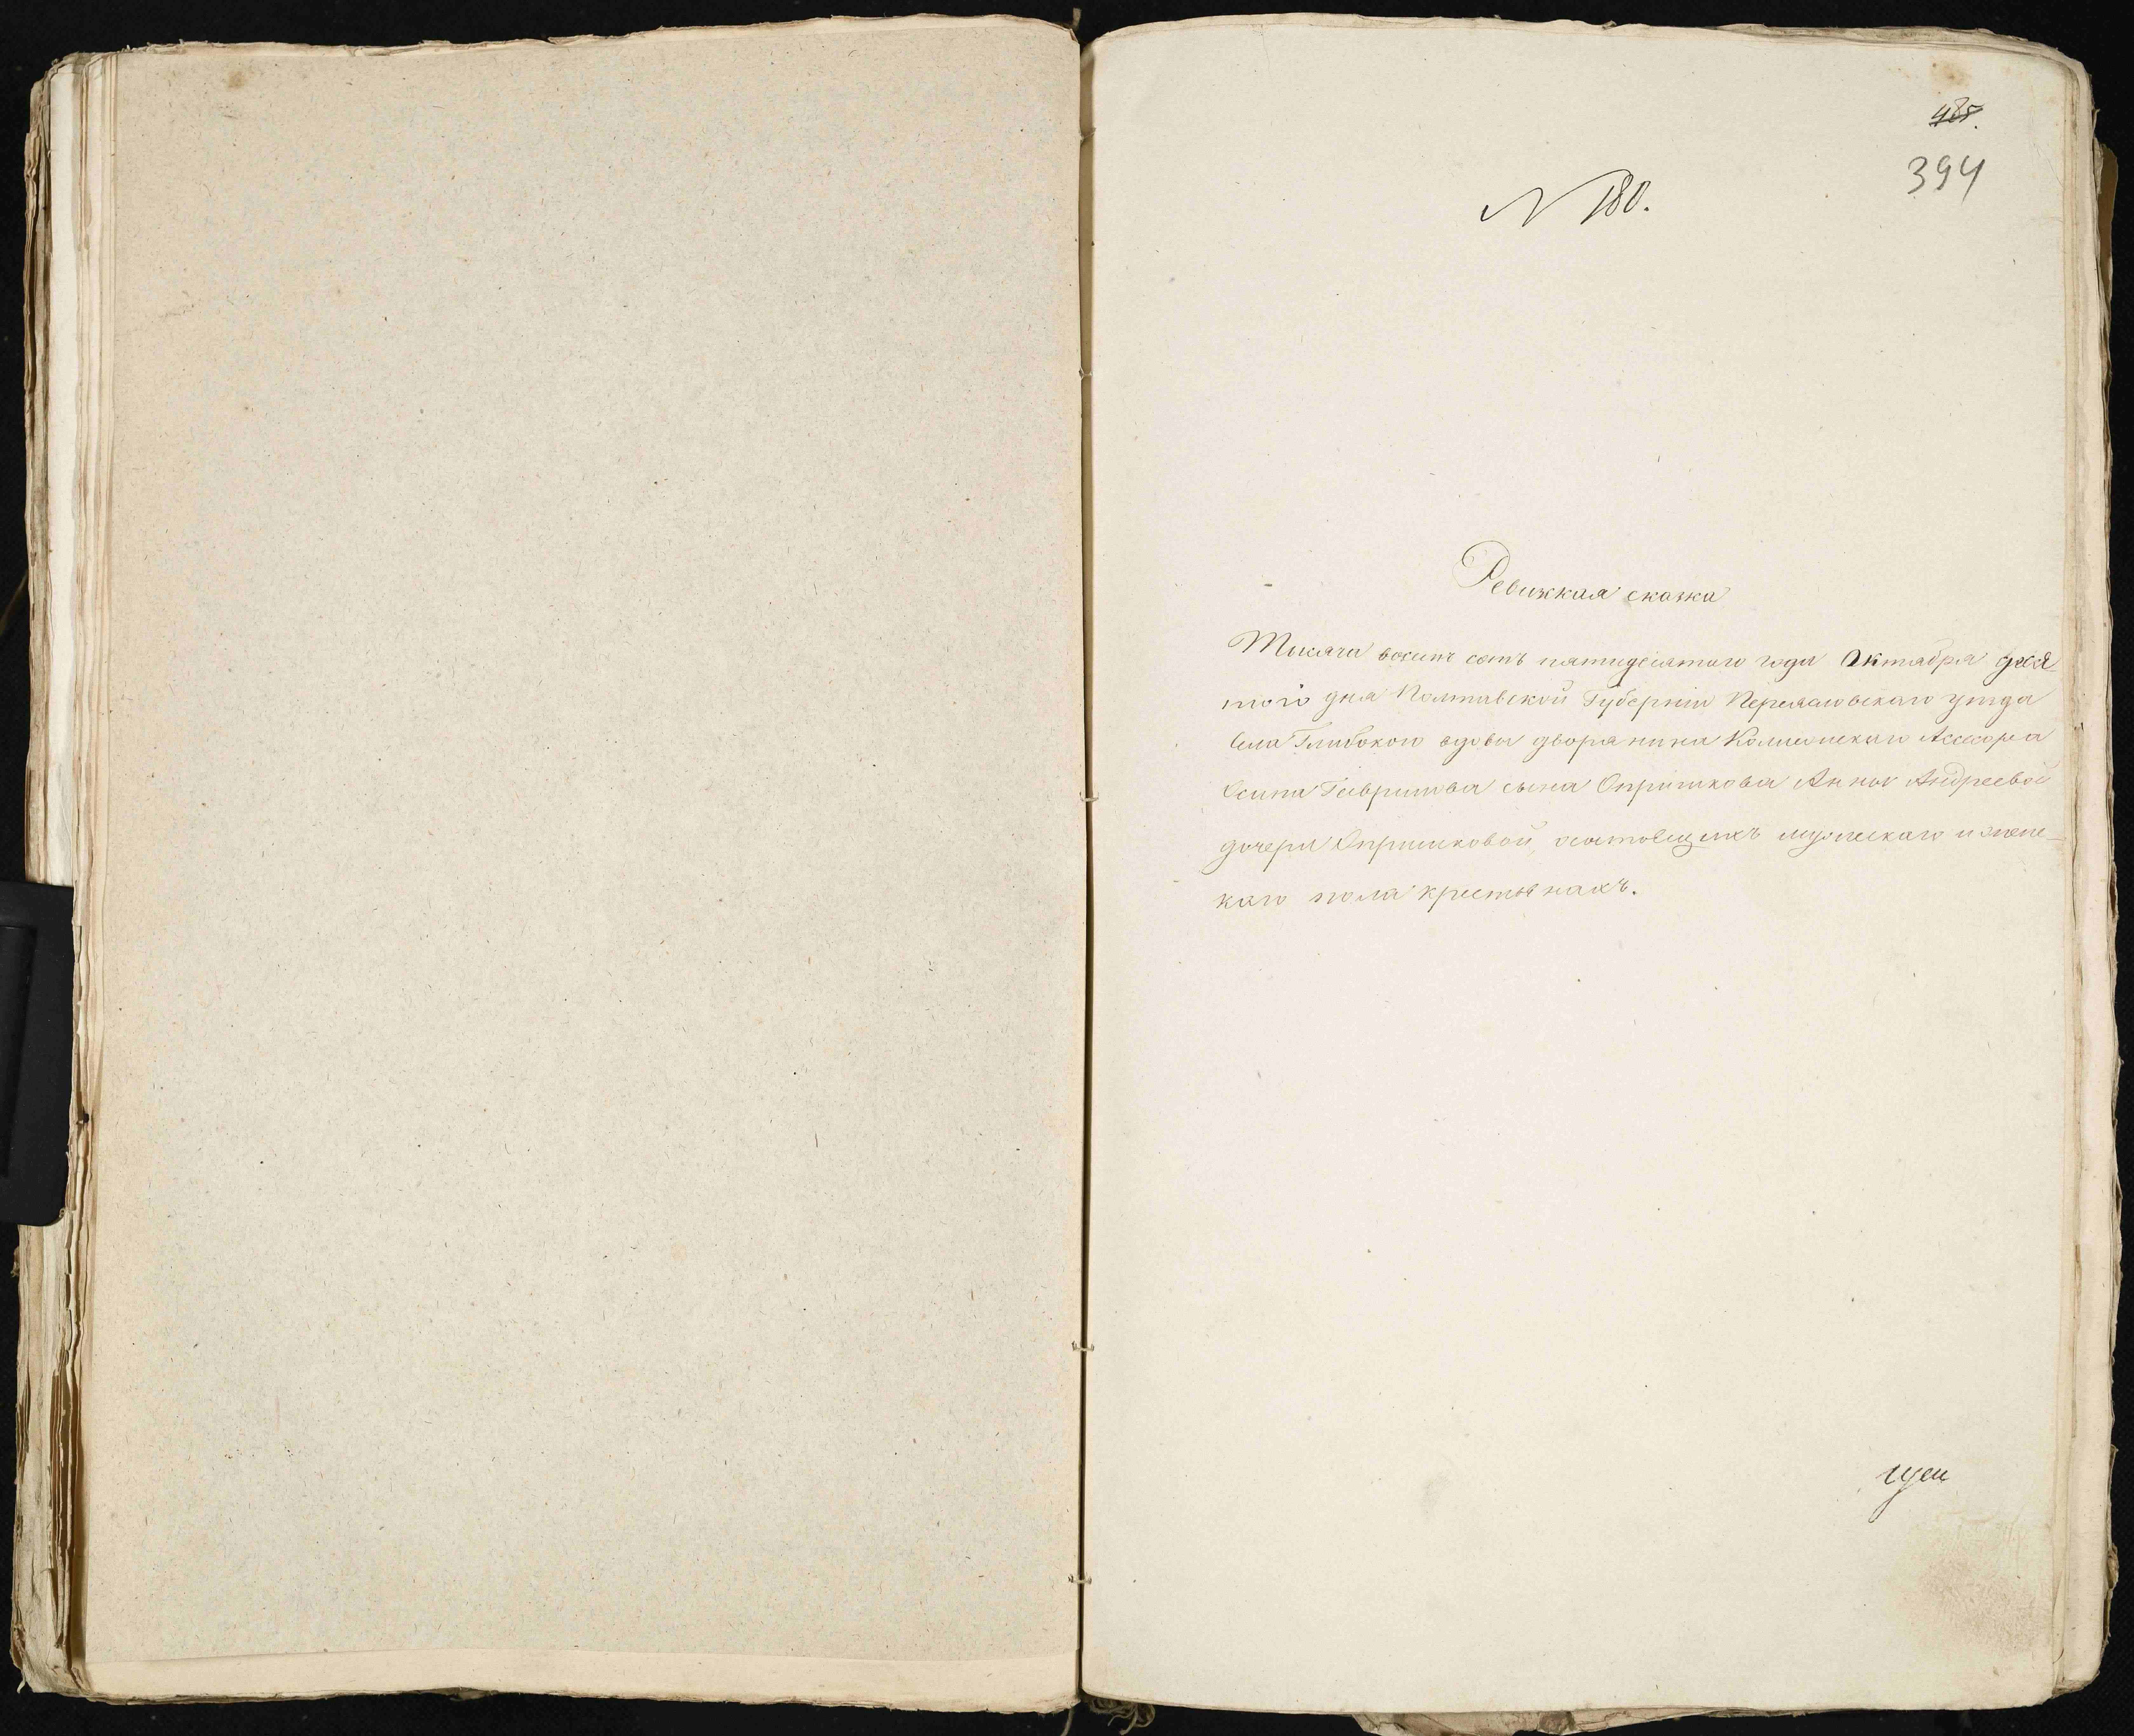 485.
394
N 180.
Ревижкая скажка
Тысяча восемъ сотъ пятидесятого года Октября деся-
того дня Полтавской Губерніи Переясловскаго уезда
села Глибокого вдовы дворянина Колежскаго Ассесора
Осипа Гаврилова сына Опришкова Анны Андреевой
дочери Опришковой, состоящихъ мужескаго и женс-
каго пола крестьянахъ.